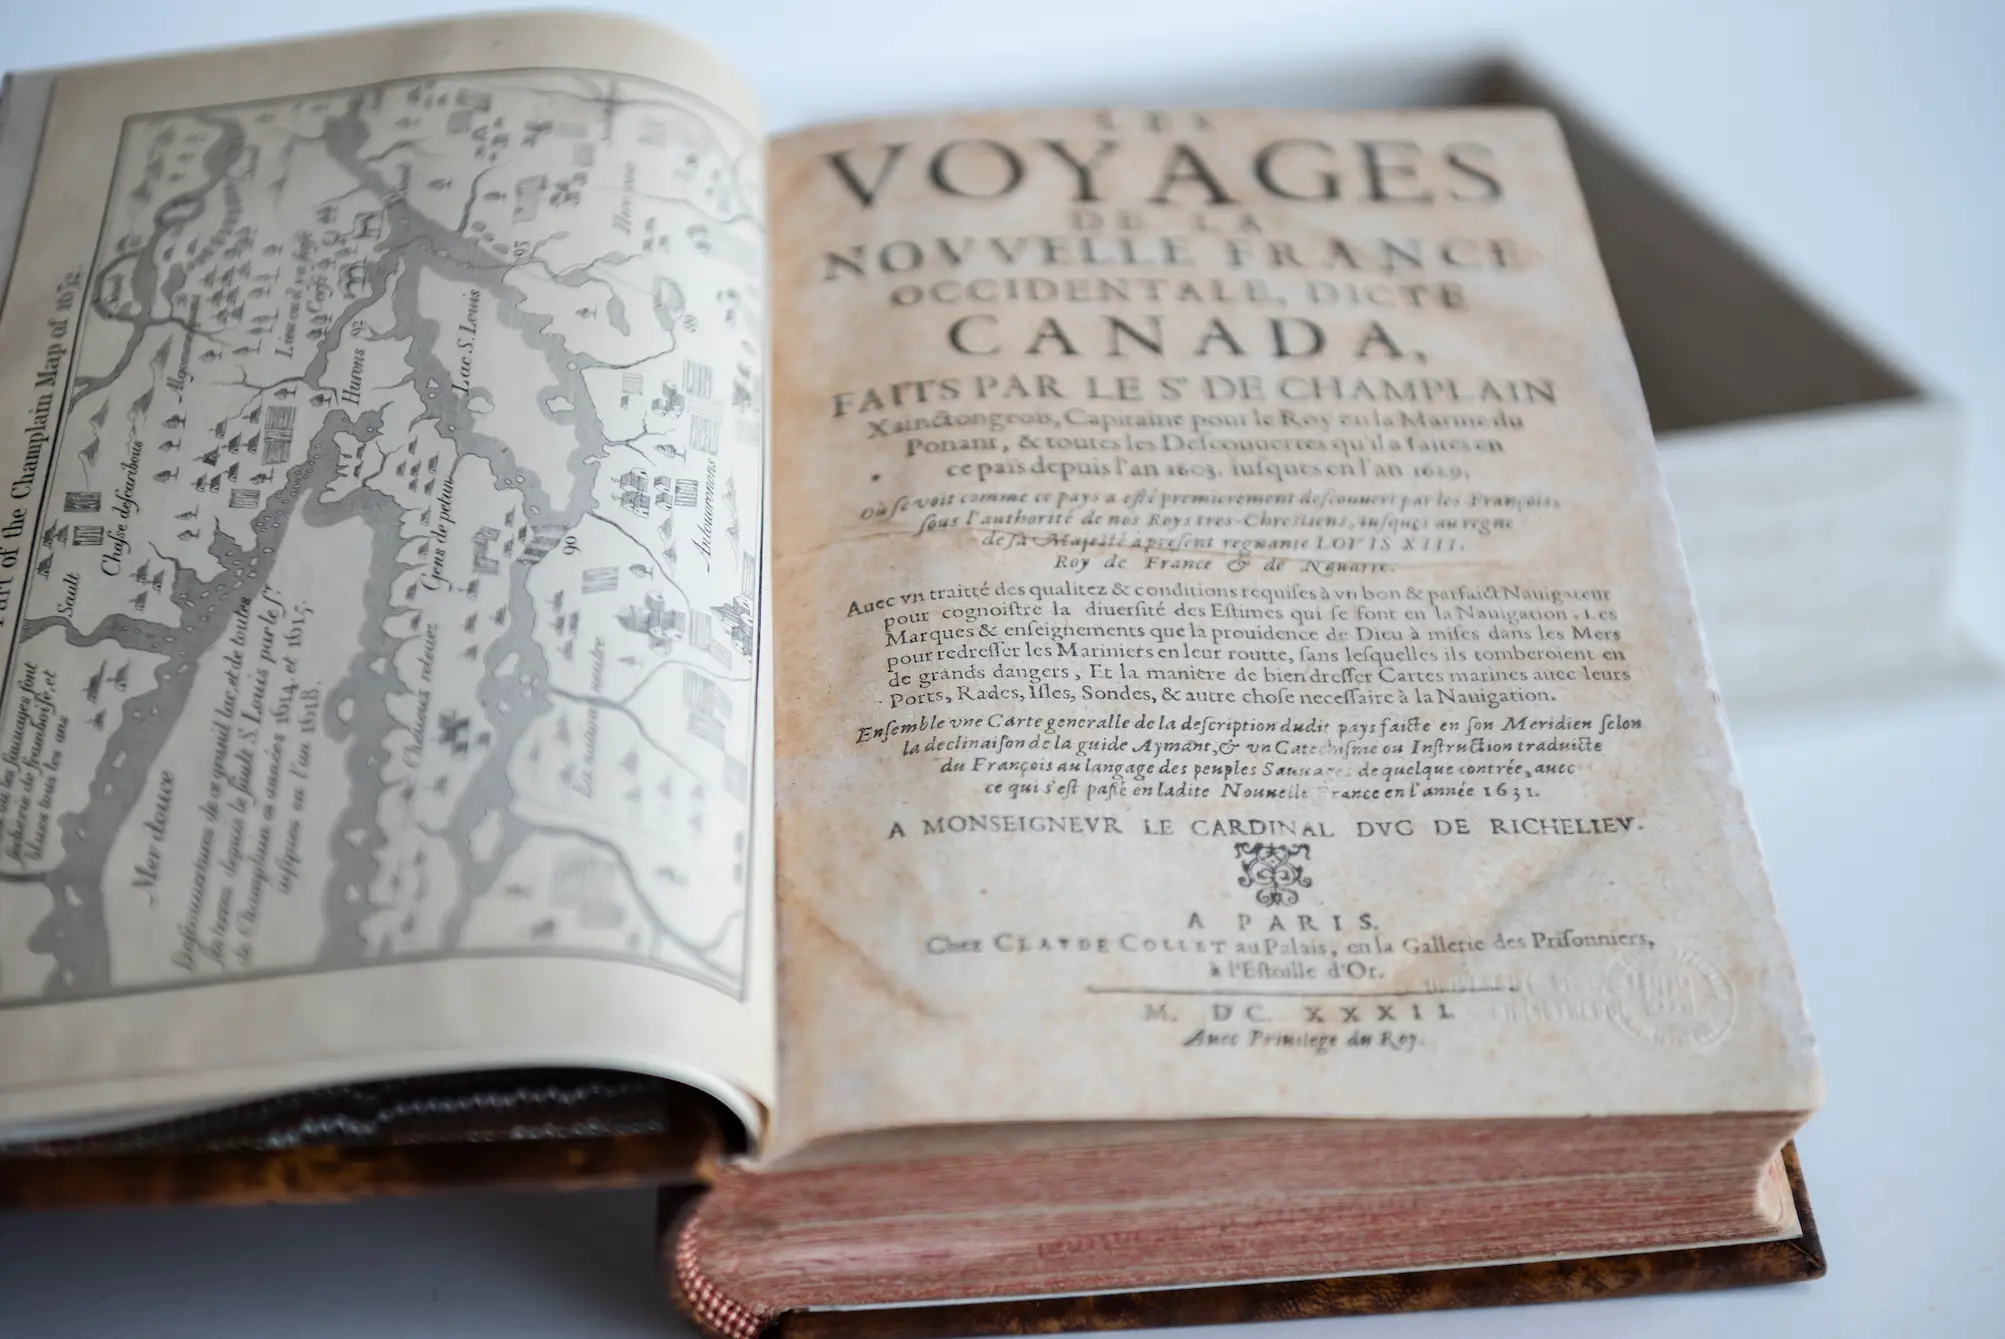 Part of the Champlain Map of 1632.
Sault
Chasse des caribous
Algommequins
Hurons 92
Lac S. Louis
93
90
Gens de petun
Antouoronons
Cheueus releuez
La nation neutre
Mer douce
Descouuertures de ce grand lac, et de toutes
les terres depuis le sault S. Louis par le Sr.
de Champlain es années 1614, et 1615.
iusques en l'an 1618.
LES
VOYAGES
DE LA
NOVVELLE FRANCE
OCCIDENTALE, DICTE
CANADA,
FAITS PAR LE Sr DE CHAMPLAIN
Xainctongeois, Capitaine pour le Roy en la Marine du
Ponant, & toutes les Descouuertes qu'il a faites en
ce païs depuis l'an 1603. iusques en l'an 1629.
Où se voit comme ce pays a esté premierement descouuert par les François,
sous l'authorité de nos Roys tres-Chrestiens, iusques au regne
de sa Majesté à present regnante LOVIS XIII.
Roy de France & de Nauarre.
Auec vn traitté des qualitez & conditions requises à vn bon & parfaict Nauigateur
pour cognoistre la diuersité des Estimes qui se font en la Nauigation. Les
Marques & enseignements que la prouidence de Dieu à mises dans les Mers
pour redresser les Mariniers en leur routte, sans lesquelles ils tomberoient en
de grands dangers, Et la maniere de bien dresser Cartes marines auec leurs
Ports, Rades, Isles, Sondes, & autre chose necessaire à la Nauigation.
Ensemble vne Carte generalle de la description dudit pays faicte en son Meridien selon
la declinaison de la guide Aymant, & vn Catechisme ou Instruction traduicte
du François au langage des peuples Sauuages de quelque contrée, auec
ce qui s'est passé en ladite Nouuelle France en l'année 1631.
A MONSEIGNEVR LE CARDINAL DVC DE RICHELIEV.
A PARIS.
Chez CLAVDE COLLET au Palais, en la Gallerie des Prisonniers,
à l'Estoille d'Or.
M. DC. XXXII.
Auec Priuilege du Roy.